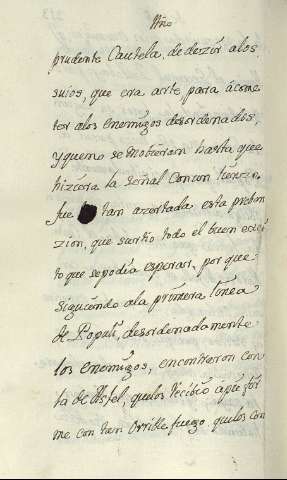 Año
prudente Cautela, de dezir alos
suios, que era arte para ácome
ter alos Enemigos desordenados,
y queno se mobieran hasta que
hiziera la señal Concon
fue tan azertada esta preben
zion, que surtio todo el buen efec
to que sepodia esperar, por que
siguiendo ala primera linea
de Populi, desordenadamente
los enemigos, encontraron con
la de Astel, quelos recibio á pie fir
me con tan Orrible fuego, quelos con